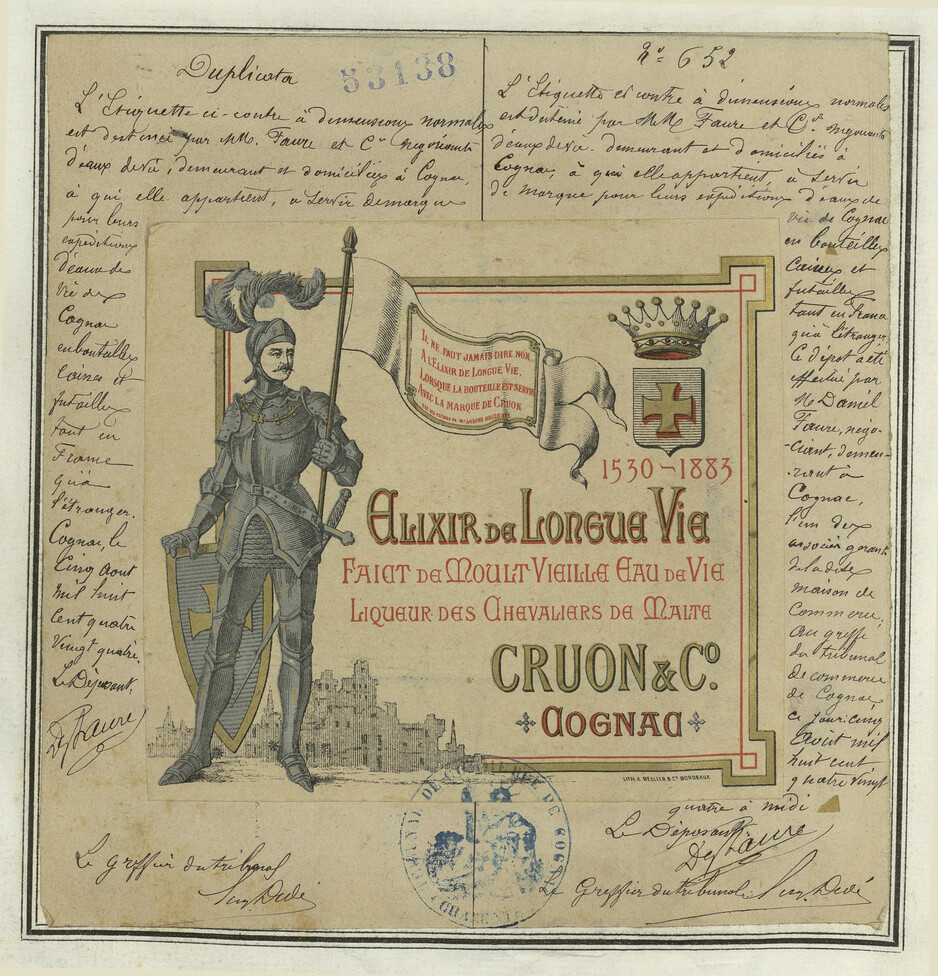 Duplicata
53138
L'Etiquette ci-contre à dimensions normales
est destinée par MM. Faure et Cie négociants
d'eaux de vie, demeurant et domiciliés à Cognac,
à qui elle appartient, à servir de marque
pour leurs
expéditions
d'eaux de
Vie de
Cognac
en bouteilles
Caisses et
futailles
tant en
France
qu'à
l'étranger.
Cognac, le
Cinq Aout
mil huit
cent quatre
Vingt quatre.
Le Déposant.
Faure
Le Greffier du tribunal
No 652
L'Etiquette ci contre à dimensions normales
est destinée par MM Faure et Cie négociants
d'eaux de vie. demeurant et domiciliés à
Cognac, à qui elle appartient, à servir
de marque pour leurs expéditions d'eaux de
vie de Cognac
en bouteilles
Caisses et
futailles
tant en France
qu'à l'étranger.
Ce dépot a été
effectué par
M Daniel
Faure, négo-
-ciant, demeu-
-rant à
Cognac,
l'un des
associés gérants
de la dite
maison de
Commerce,
Au greffe
du tribunal
de commerce
de Cognac,
ce jour cinq
Août mil
huit cent
quatre vingt
quatre à midi
Le Déposant
Faure
Le Greffier du tribunal
IL NE FAUT JAMAIS DIRE NON,
A L'ÉLIXIR DE LONGUE VIE,
LORSQUE LA BOUTEILLE EST SERVIE
AVEC LA MARQUE DE CRUON
1530-1883
ELIXIR DE LONGUE VIE
FAICT DE MOULT VIEILLE EAU DE VIE
LIQUEUR DES CHEVALIERS DE MALTE
CRUON & Co.
COGNAC
LITH. A. BELLIER & Cie BORDEAUX
TRIBUNAL DE COMMERCE DE COGNAC